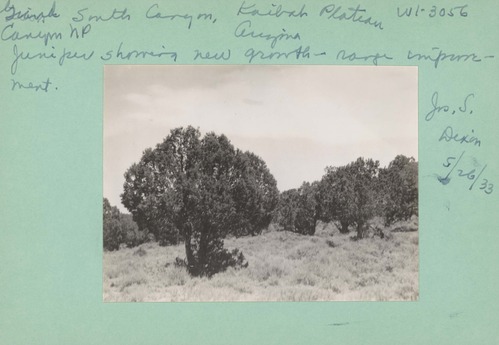 Grand South Canyon, Kaibab Plateau WI-3056
Canyon NP Arizona
Juniper showing new growth - range improve-
ment.
Jos. S.
Dixon
5/26/33